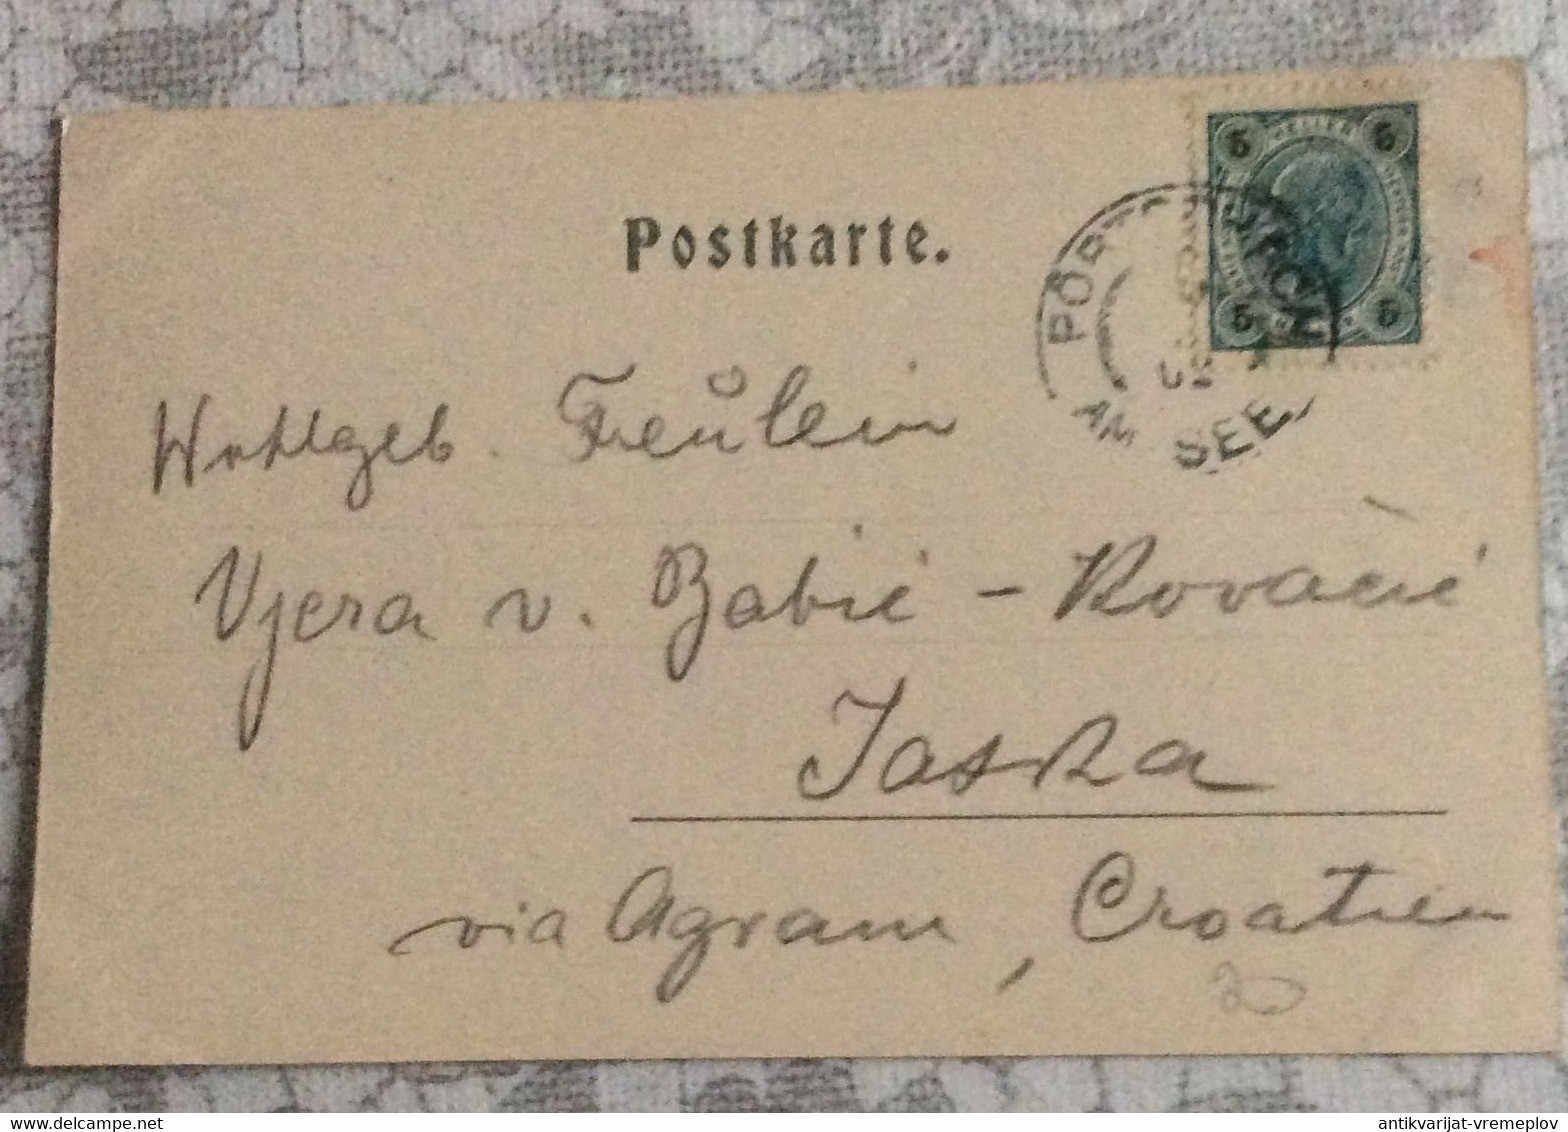 Postkarte.
PÖRTSCHACH AM SEE
5 5
5 5
Wohlgeb. Freulein
Vjera v. Babić - Kovačić
Jaska
via Agram, Croatien
20
antikvarijat-vremeplov